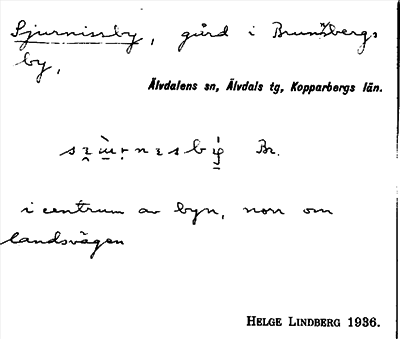 Sjurnissby, gård i Brunnsbergs
by,
Älvdalens sn, Älvdals tg, Kopparbergs län.
Br.
i centrum av byn, norr om
landsvägen
HELGE LINDBERG 1936.